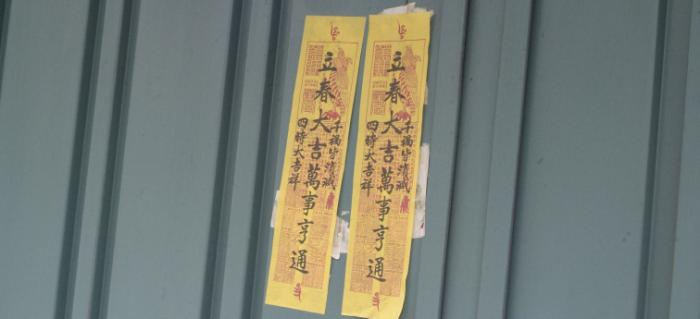 千禍皆消滅
立春大吉萬事亨通
四時大吉祥
千禍皆消滅
立春大吉萬事亨通
四時大吉祥